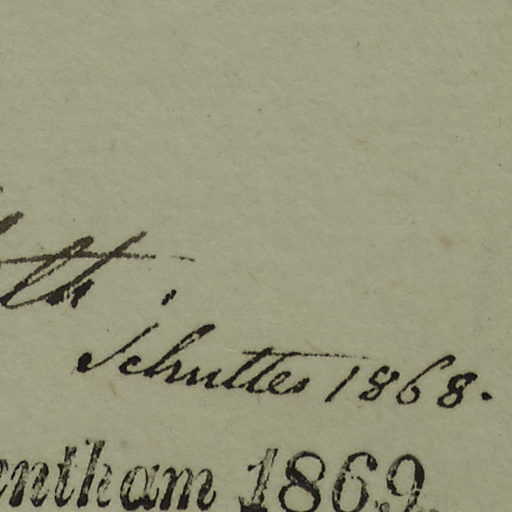 th.
Schuttes 1868.
entham 1869.